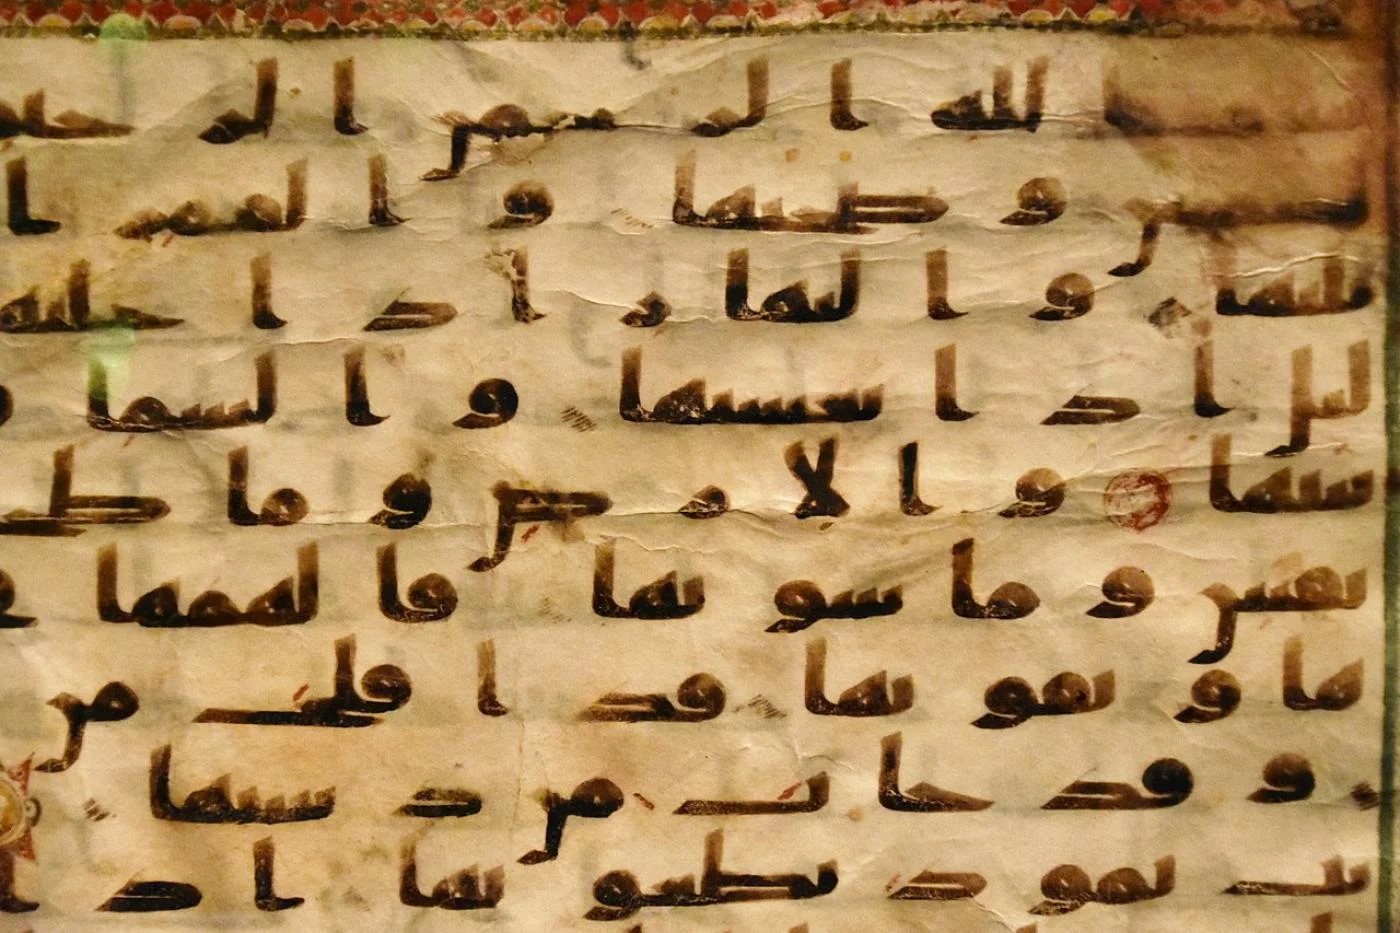 الله الرحمن الرحـ
ـشمس وضحيها والقمر ا
تليها والنهار اذا جليها
ليل اذا يغشيها والسما و
بنيها والارض وما طحـ
نفس وما سويها فالهمها فـ
ها وتقويها قد افلح من
وقد خاب من دسيها
بت ثمود بطغويها اذ ا